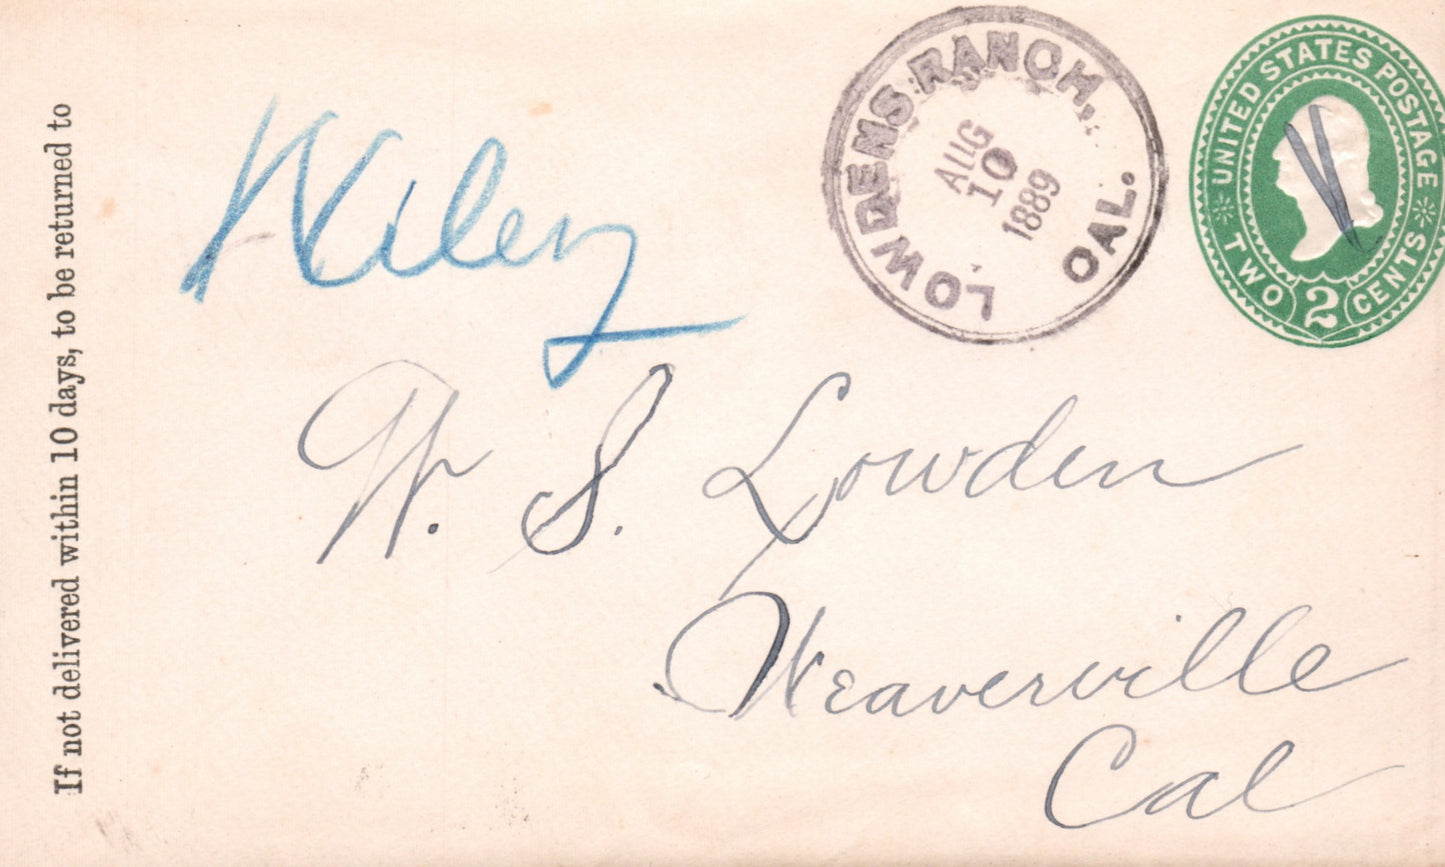 If not delivered within 10 days, to be returned to
Wiley
LOWDENS RANCH,
CAL.
AUG
10
1889
UNITED STATES POSTAGE
TWO 2 CENTS
W. S. Lowden
Weaverville
Cal